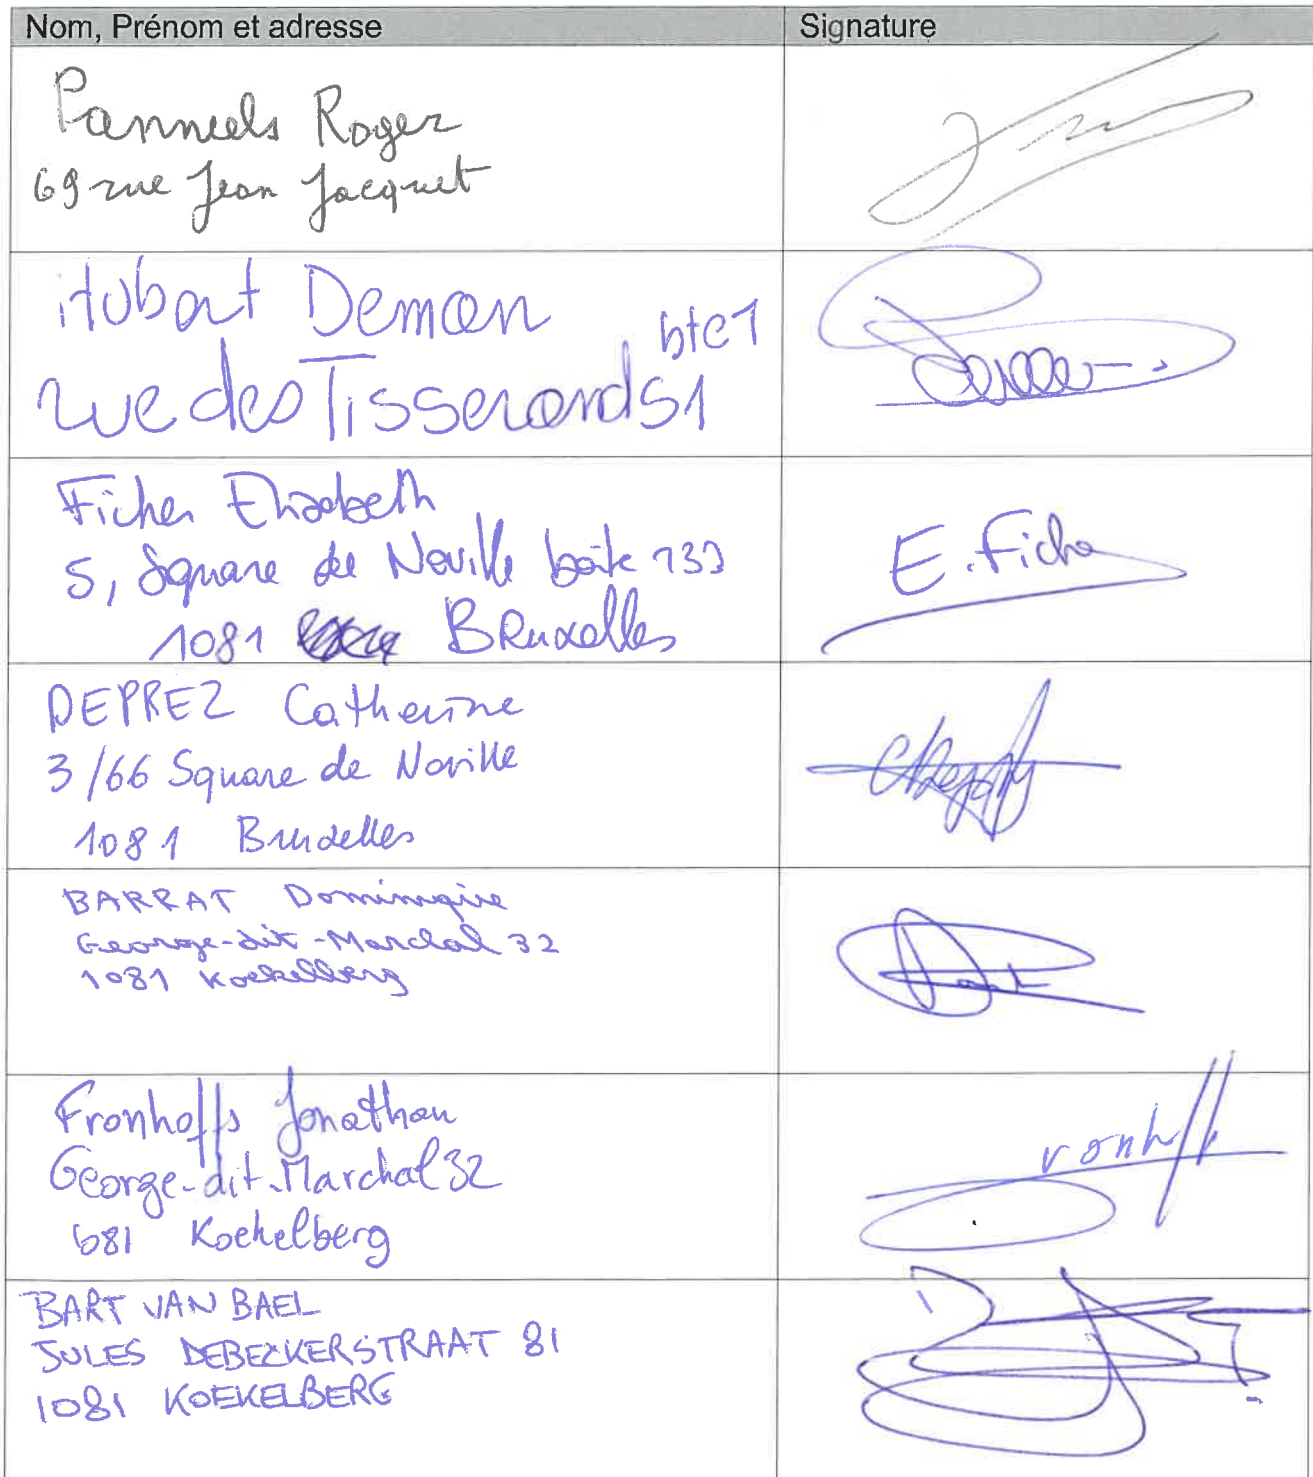 Nom, Prénom et adresse
Signature
Panneels Roger
69 rue Jean Jacquet
Hubert Deman
rue des Tisserands 1 bte 1
Ficher Elisabeth
5, Square de Noville boîte 133
1081 Bruxelles
E. Ficher
DEPREZ Catherine
3/66 Square de Noville
1081 Bruxelles
BARRAT Dominique
George-dit-Marchal 32
1081 Koekelberg
Fronhoffs Jonathan
George-dit-Marchal 32
1081 Koekelberg
BART VAN BAEL
JULES DEBECKERSTRAAT 81
1081 KOEKELBERG